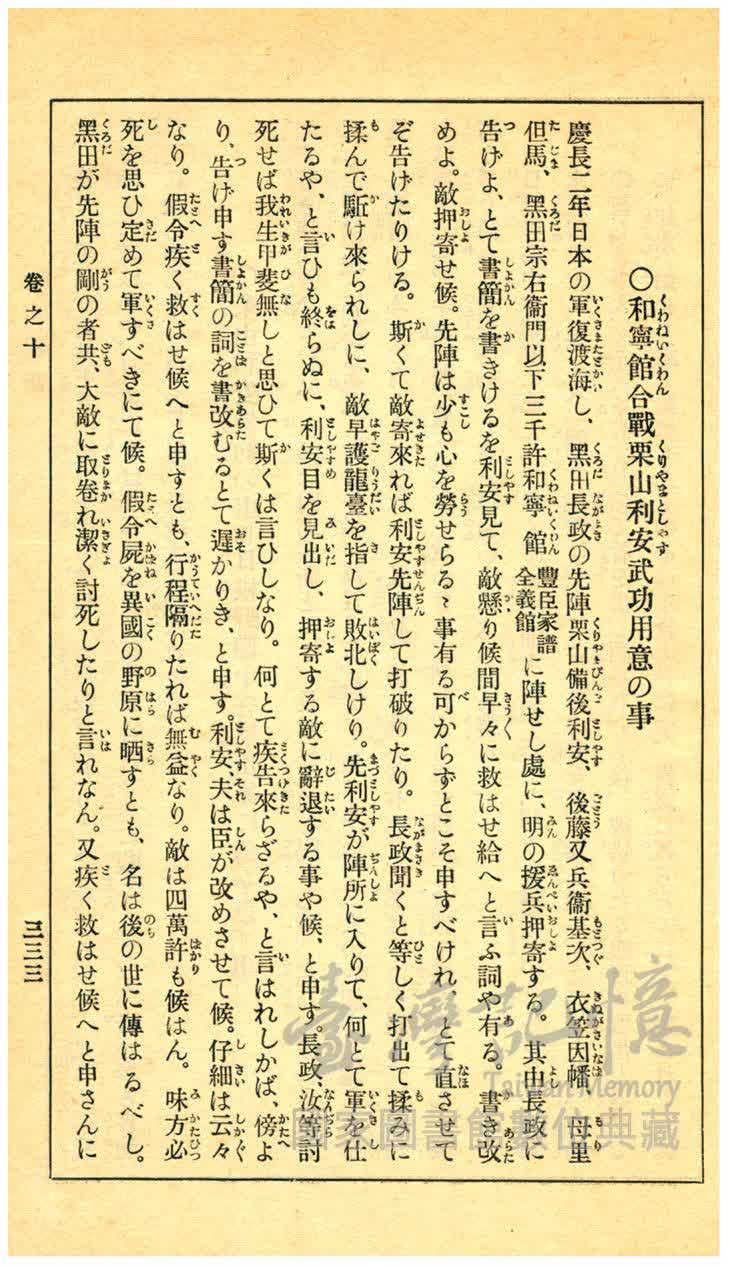 ○和寧館合戰栗山利安武功用意の事
慶長二年日本の軍復渡海し、黑田長政の先陣栗山備後利安、後藤又兵衞基次、衣笠因幡、母里
但馬、黑田宗右衞門以下三千許和寧館豐臣家譜全義館に陣せし處に、明の援兵押寄する。其由長政に
告げよ、とて書簡を書きけるを利安見て、敵懸り候間早々に救はせ給へと言ふ詞や有る。書き改
めよ。敵押寄せ候。先陣は少も心を勞せらるゝ事有る可からずとこそ申すべけれ、とて直させて
ぞ告げたりける。斯くて敵寄來れば利安先陣して打破りたり。長政聞くと等しく打出て揉みに
揉んで駈け來られしに、敵早護龍臺を指して敗北しけり。先利安が陣所に入りて、何とて軍を仕
たるや、と言ひも終らぬに、利安目を見出し、押寄する敵に辭退する事や候、と申す。長政、汝等討
死せば我生甲斐無しと思ひて斯くは言ひしなり。何とて疾告來らざるや、と言はれしかば、傍よ
り、告げ申す書簡の詞を書改むるとて遲かりき、と申す。利安、夫は臣が改めさせて候。仔細は云々
なり。假令疾く救はせ候へと申すとも、行程隔りたれば無益なり。敵は四萬許も候はん。味方必
死を思ひ定めて軍すべきにて候。假令屍を異國の野原に晒すとも、名は後の世に傳はるべし。
黑田が先陣の剛の者共、大敵に取卷れ潔く討死したりと言れなん。又疾く救はせ候へと申さんに
卷之十
三三三
臺灣記憶
Taiwan Memory
國家圖書館數位典藏